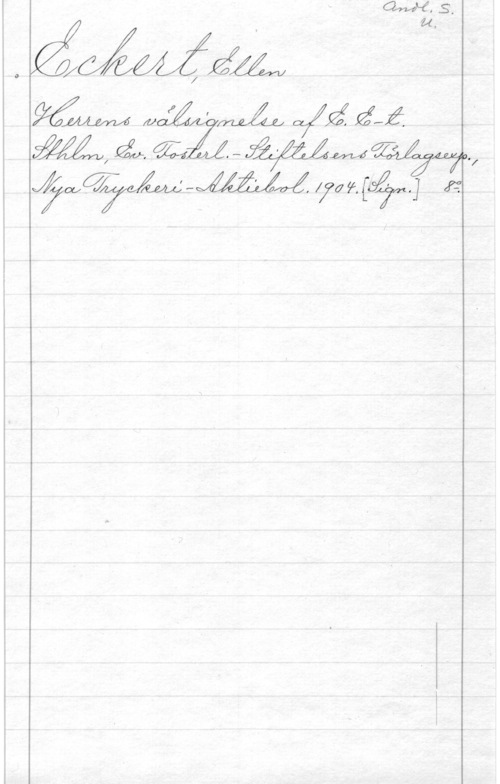 Andl. S.
U.
Eckert, Ellen
Herrens välsignelse af E. E-t.
Sthlm, Ev. Fosterl.-Stiftelsens Förlagsexp.,
Nya Tryckeri-Aktiebol. 1904. [Sign.] 8:o